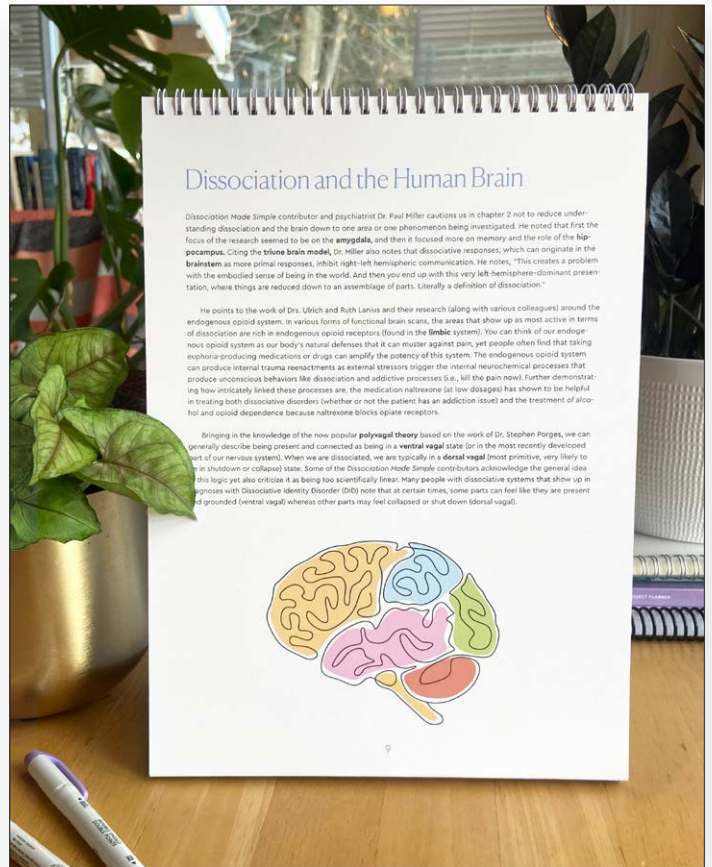 Dissociation and the Human Brain
Dissociation Made Simple contributor and psychiatrist Dr. Paul Miller cautions us in chapter 2 not to reduce under-
standing dissociation and the brain down to one area or one phenomenon being investigated. He noted that first the
focus of the research seemed to be on the amygdala, and then it focused more on memory and the role of the hip-
pocampus. Citing the triune brain model, Dr. Miller also notes that dissociative responses, which can originate in the
brainstem as more primal responses, inhibit right–left hemispheric communication. He notes, "This creates a problem
with the embodied sense of being in the world. And then you end up with this very left-hemisphere–dominant presen-
tation, where things are reduced down to an assemblage of parts. Literally a definition of dissociation."
He points to the work of Drs. Ulrich and Ruth Lanius and their research (along with various colleagues) around the
endogenous opioid system. In various forms of functional brain scans, the areas that show up as most active in terms
of dissociation are rich in endogenous opioid receptors (found in the limbic system). You can think of our endoge-
nous opioid system as our body's natural defenses that it can muster against pain, yet people often find that taking
euphoria-producing medications or drugs can amplify the potency of this system. The endogenous opioid system
can produce internal trauma reenactments as external stressors trigger the internal neurochemical processes that
produce unconscious behaviors like dissociation and addictive processes (i.e., kill the pain now). Further demonstrat-
ing how intricately linked these processes are, the medication naltrexone (at low dosages) has shown to be helpful
in treating both dissociative disorders (whether or not the patient has an addiction issue) and the treatment of alco-
hol and opioid dependence because naltrexone blocks opiate receptors.
Bringing in the knowledge of the now popular polyvagal theory based on the work of Dr. Stephen Porges, we can
generally describe being present and connected as being in a ventral vagal state (or in the most recently developed
part of our nervous system). When we are dissociated, we are typically in a dorsal vagal (most primitive, very likely to
in shutdown or collapse) state. Some of the Dissociation Made Simple contributors acknowledge the general idea
this logic yet also criticize it as being too scientifically linear. Many people with dissociative systems that show up in
agnoses with Dissociative Identity Disorder (DID) note that at certain times, some parts can feel like they are present
d grounded (ventral vagal) whereas other parts may feel collapsed or shut down (dorsal vagal).
9
PLANNER